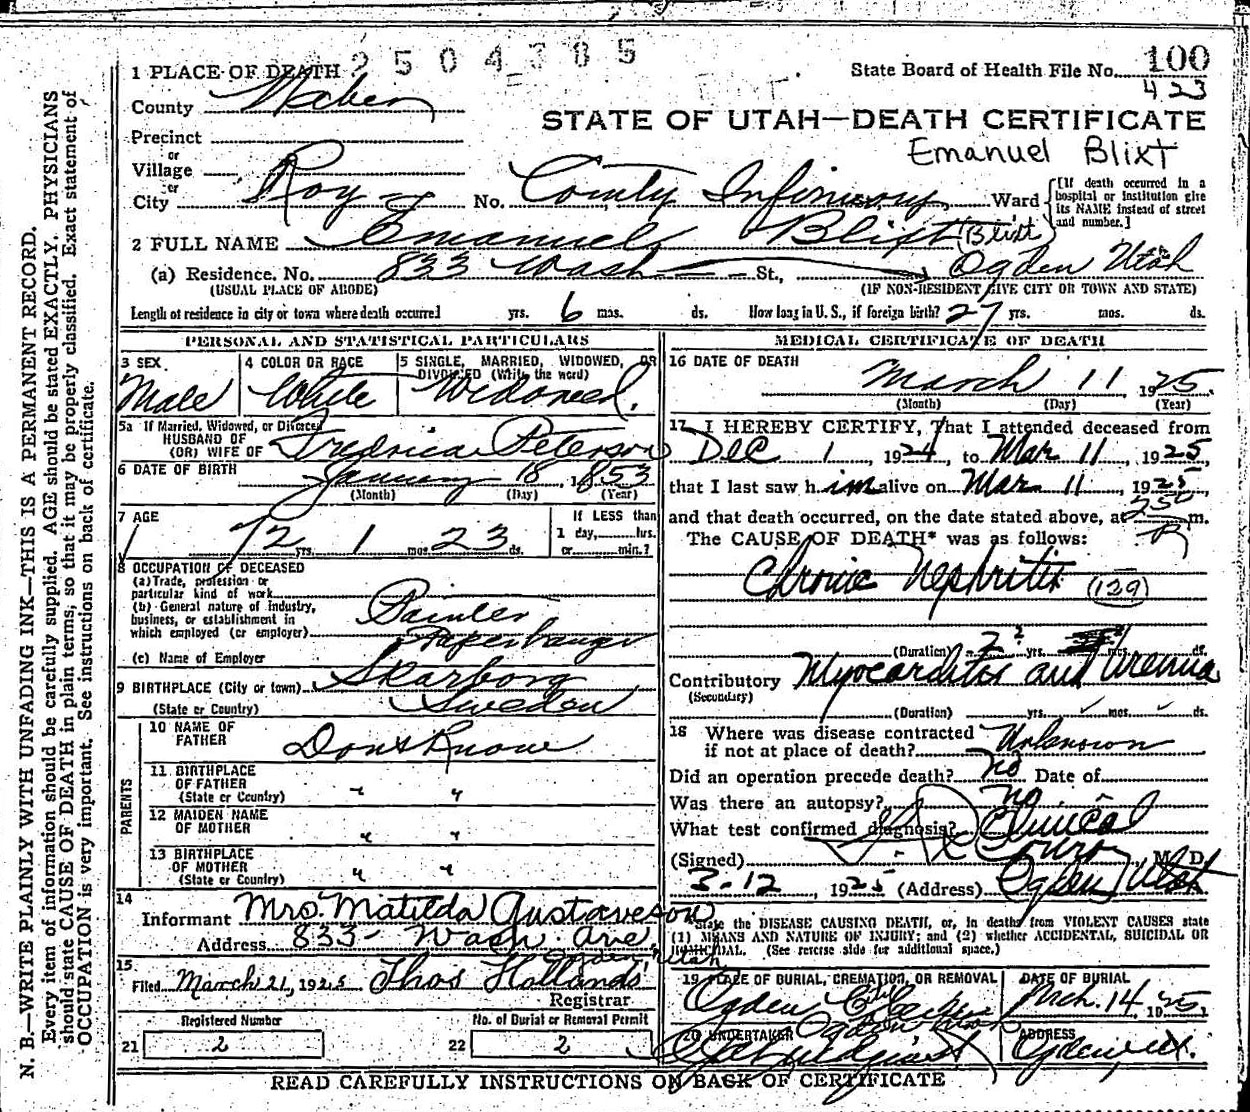 2504385
1 PLACE OF DEATH
State Board of Health File No. 100
423
County Weber
STATE OF UTAH—DEATH CERTIFICATE
Precinct
Emanuel Blixt
or
Village
or
City Roy No. County Infirmary Ward
[If death occurred in a hospital or institution give its NAME instead of street and number.]
2 FULL NAME Emanuel Blixt (Blixt)
(a) Residence. No. 833 Wash St., Ogden Utah
(USUAL PLACE OF ABODE) (IF NON-RESIDENT GIVE CITY OR TOWN AND STATE)
Length of residence in city or town where death occurred yrs. 6 mos. ds. How long in U. S., if foreign birth? 27 yrs. mos. ds.
PERSONAL AND STATISTICAL PARTICULARS
3 SEX
Male
4 COLOR OR RACE
White
5 SINGLE, MARRIED, WIDOWED, OR
DIVORCED (Write the word)
Widowed.
5a If Married, Widowed, or Divorced
HUSBAND OF
(OR) WIFE OF Fredrica Peterson
6 DATE OF BIRTH January 18, 1853
(Month) (Day) (Year)
7 AGE
72 yrs. 1 mos. 23 ds.
If LESS than
1 day, hrs.
or min.?
8 OCCUPATION OF DECEASED
(a) Trade, profession or
particular kind of work
(b) General nature of industry,
business, or establishment in
which employed (or employer)
Painter
Paperhanger
(c) Name of Employer
9 BIRTHPLACE (City or town) Skarborg
(State or Country) Sweden
PARENTS
10 NAME OF
FATHER Dont Know
11 BIRTHPLACE
OF FATHER
(State or Country) " "
12 MAIDEN NAME
OF MOTHER " "
13 BIRTHPLACE
OF MOTHER
(State or Country) " "
14
Informant Mrs. Matilda Gustaveson
Address 833 - Wash Ave,
Ogden Utah
15
Filed March 21, 1925 Thos Hollands
Registrar
Registered Number No. of Burial or Removal Permit
21 2 22 2
MEDICAL CERTIFICATE OF DEATH
16 DATE OF DEATH
March 11 1925.
(Month) (Day) (Year)
17 I HEREBY CERTIFY, That I attended deceased from
Dec 1, 1924, to Mar 11, 1925,
that I last saw him alive on Mar 11, 1925,
and that death occurred, on the date stated above, at 250 P m.
The CAUSE OF DEATH* was as follows:
Chronic Nephritis (129)
(Duration) 2 yrs. mos. ds.
Contributory Myocarditis and Uremia
(Secondary)
(Duration) yrs. mos. ds.
18 Where was disease contracted
if not at place of death? Unknown
Did an operation precede death? no Date of
Was there an autopsy? no
What test confirmed diagnosis? Clinical
(Signed) M. D.
3-12, 1925 (Address) Ogden, Utah
*State the DISEASE CAUSING DEATH, or, in deaths from VIOLENT CAUSES state
(1) MEANS AND NATURE OF INJURY; and (2) whether ACCIDENTAL, SUICIDAL OR
HOMICIDAL. (See reverse side for additional space.)
19 PLACE OF BURIAL, CREMATION, OR REMOVAL
Ogden City
DATE OF BURIAL
Mch. 14, 1925
20 UNDERTAKER
ADDRESS
Ogden, Ut.
READ CAREFULLY INSTRUCTIONS ON BACK OF CERTIFICATE
N. B.—WRITE PLAINLY WITH UNFADING INK—THIS IS A PERMANENT RECORD.
Every item of information should be carefully supplied. AGE should be stated EXACTLY. PHYSICIANS
should state CAUSE OF DEATH in plain terms, so that it may be properly classified. Exact statement of
OCCUPATION is very important. See instructions on back of certificate.